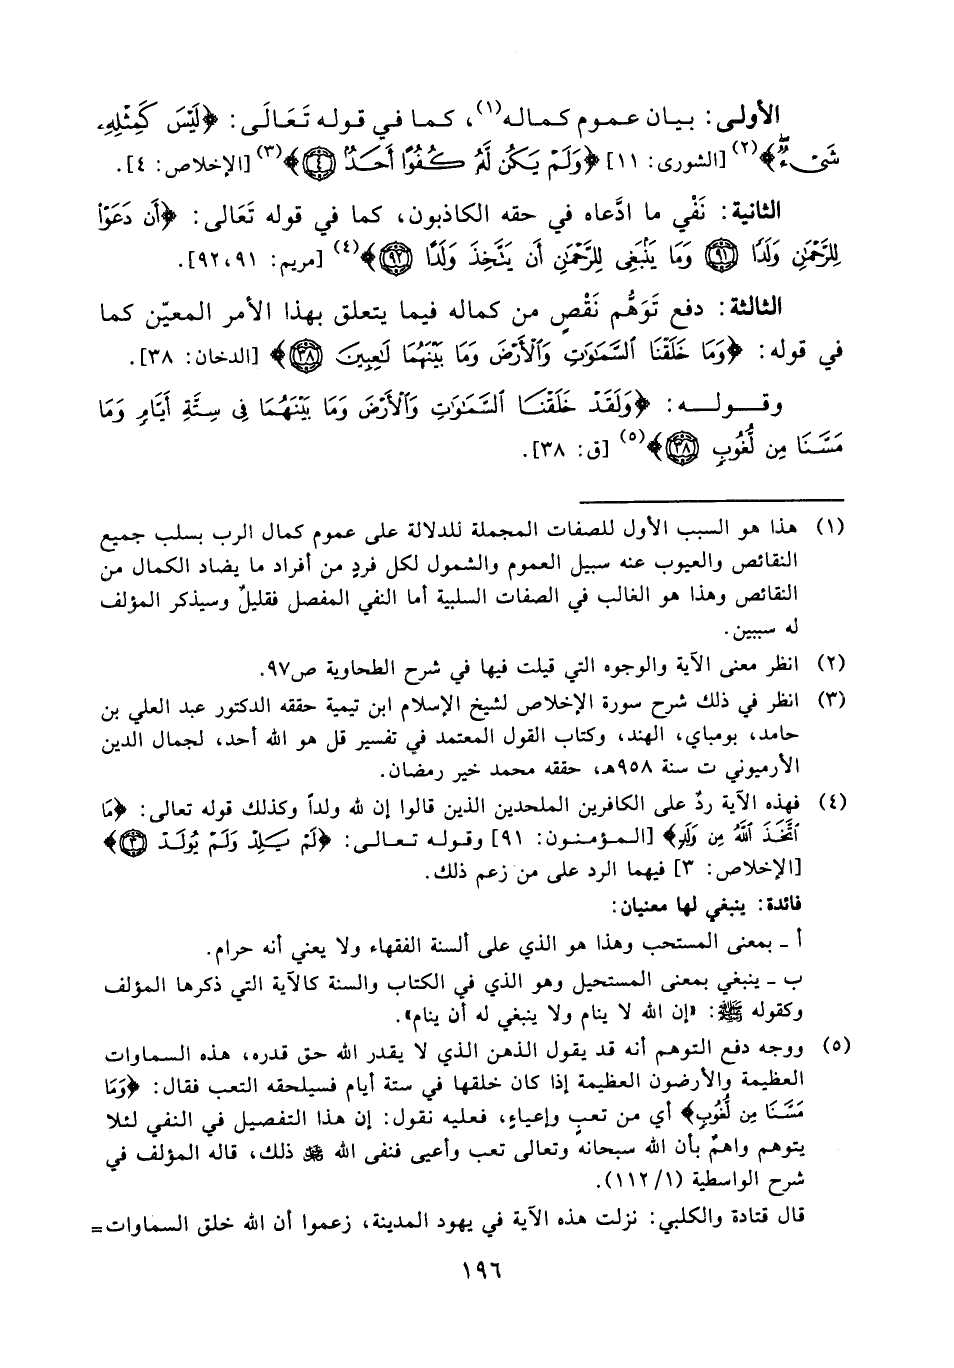 الأولى: بيان عموم كماله(١)، كما في قوله تَعَالَى: ﴿لَيْسَ كَمِثْلِهِۦ
شَىْءٌ﴾(٢) [الشورى: ١١] ﴿وَلَمْ يَكُن لَّهُۥ كُفُوًا أَحَدٌۢ ٤﴾(٣) [الإخلاص: ٤].
الثانية: نَفْي ما ادَّعاه في حقه الكاذبون، كما في قوله تَعَالى: ﴿أَن دَعَوْا۟
لِلرَّحْمَٰنِ وَلَدًا ٩١ وَمَا يَنۢبَغِى لِلرَّحْمَٰنِ أَن يَتَّخِذَ وَلَدًا ٩٢﴾(٤) [مريم: ٩١، ٩٢].
الثالثة: دفع تَوَهُّم نَقْصٍ من كماله فيما يتعلق بهذا الأمر المعيّن كما
في قوله: ﴿وَمَا خَلَقْنَا ٱلسَّمَٰوَٰتِ وَٱلْأَرْضَ وَمَا بَيْنَهُمَا لَٰعِبِينَ ٣٨﴾ [الدخان: ٣٨].
وقوله: ﴿وَلَقَدْ خَلَقْنَا ٱلسَّمَٰوَٰتِ وَٱلْأَرْضَ وَمَا بَيْنَهُمَا فِى سِتَّةِ أَيَّامٍ وَمَا
مَسَّنَا مِن لُّغُوبٍ ٣٨﴾(٥) [ق: ٣٨].
(١) هذا هو السبب الأول للصفات المجملة للدلالة على عموم كمال الرب بسلب جميع
النقائص والعيوب عنه سبيل العموم والشمول لكل فردٍ من أفراد ما يضاد الكمال من
النقائص وهذا هو الغالب في الصفات السلبية أما النفي المفصل فقليلٌ وسيذكر المؤلف
له سببين.
(٢) انظر معنى الآية والوجوه التي قيلت فيها في شرح الطحاوية ص٩٧.
(٣) انظر في ذلك شرح سورة الإخلاص لشيخ الإسلام ابن تيمية حققه الدكتور عبد العلي بن
حامد، بومباي، الهند، وكتاب القول المعتمد في تفسير قل هو الله أحد، لجمال الدين
الأرميوني ت سنة ٩٥٨هـ، حققه محمد خير رمضان.
(٤) فهذه الآية ردٌ على الكافرين الملحدين الذين قالوا إن لله ولداً وكذلك قوله تعالى: ﴿مَا
ٱتَّخَذَ ٱللَّهُ مِن وَلَدٍ﴾ [المؤمنون: ٩١] وقوله تعالى: ﴿لَمْ يَلِدْ وَلَمْ يُولَدْ ٣﴾
[الإخلاص: ٣] فيهما الرد على من زعم ذلك.
فائدة: ينبغي لها معنيان:
أ ـ بمعنى المستحب وهذا هو الذي على ألسنة الفقهاء ولا يعني أنه حرام.
ب ـ ينبغي بمعنى المستحيل وهو الذي في الكتاب والسنة كالآية التي ذكرها المؤلف
وكقوله ﷺ: «إن الله لا ينام ولا ينبغي له أن ينام».
(٥) ووجه دفع التوهم أنه قد يقول الذهن الذي لا يقدر الله حق قدره، هذه السماوات
العظيمة والأرضون العظيمة إذا كان خلقها في ستة أيام فسيلحقه التعب فقال: ﴿وَمَا
مَسَّنَا مِن لُّغُوبٍ﴾ أي من تعبٍ وإعياءٍ، فعليه نقول: إن هذا التفصيل في النفي لئلا
يتوهم واهمٌ بأن الله سبحانه وتعالى تعب وأعيى فنفى الله ذلك، قاله المؤلف في
شرح الواسطية (١/ ١١٢).
قال قتادة والكلبي: نزلت هذه الآية في يهود المدينة، زعموا أن الله خلق السماوات=
١٩٦